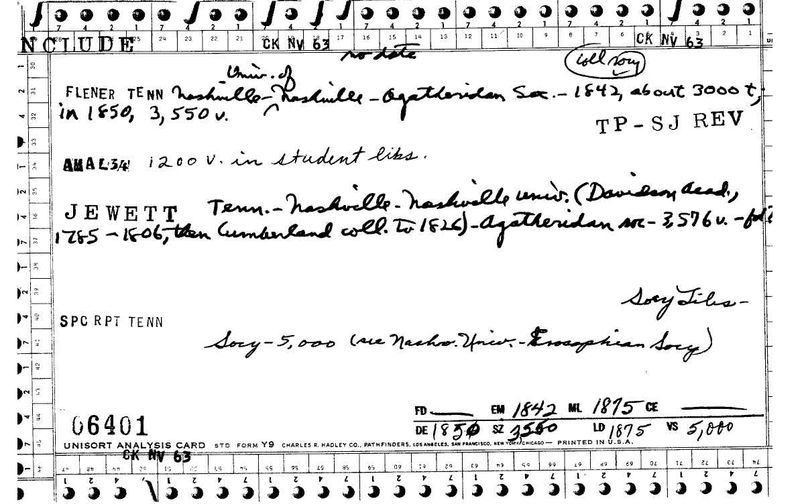 NCLUDE
CK NV 63
CK NV 63
no date
coll socy
Univ. of
FLENER TENN Nashville - Nashville - Agatheridan Soc. - 1842, about 3000 t,
in 1850, 3,550 v.
TP-SJ REV
AMAL34 1200 v. in student libs.
JEWETT Tenn. - Nashville - Nashville univ. (Davidson Acad.,
1785 - 1806, then Cumberland coll. to 1826) - Agatheridan soc - 3,576 v. -
Socy Libs -
SPC RPT TENN
Socy - 5,000 (see Nashv. Univ. - Erosophian Socy)
FD EM 1842 ML 1875 CE
06401
DE 1850 SZ 3560 LD 1875 VS 5,000
UNISORT ANALYSIS CARD STD FORM Y9 CHARLES R. HADLEY CO., PATHFINDERS, LOS ANGELES, SAN FRANCISCO, NEW YORK, CHICAGO — PRINTED IN U.S.A.
CK NV 63